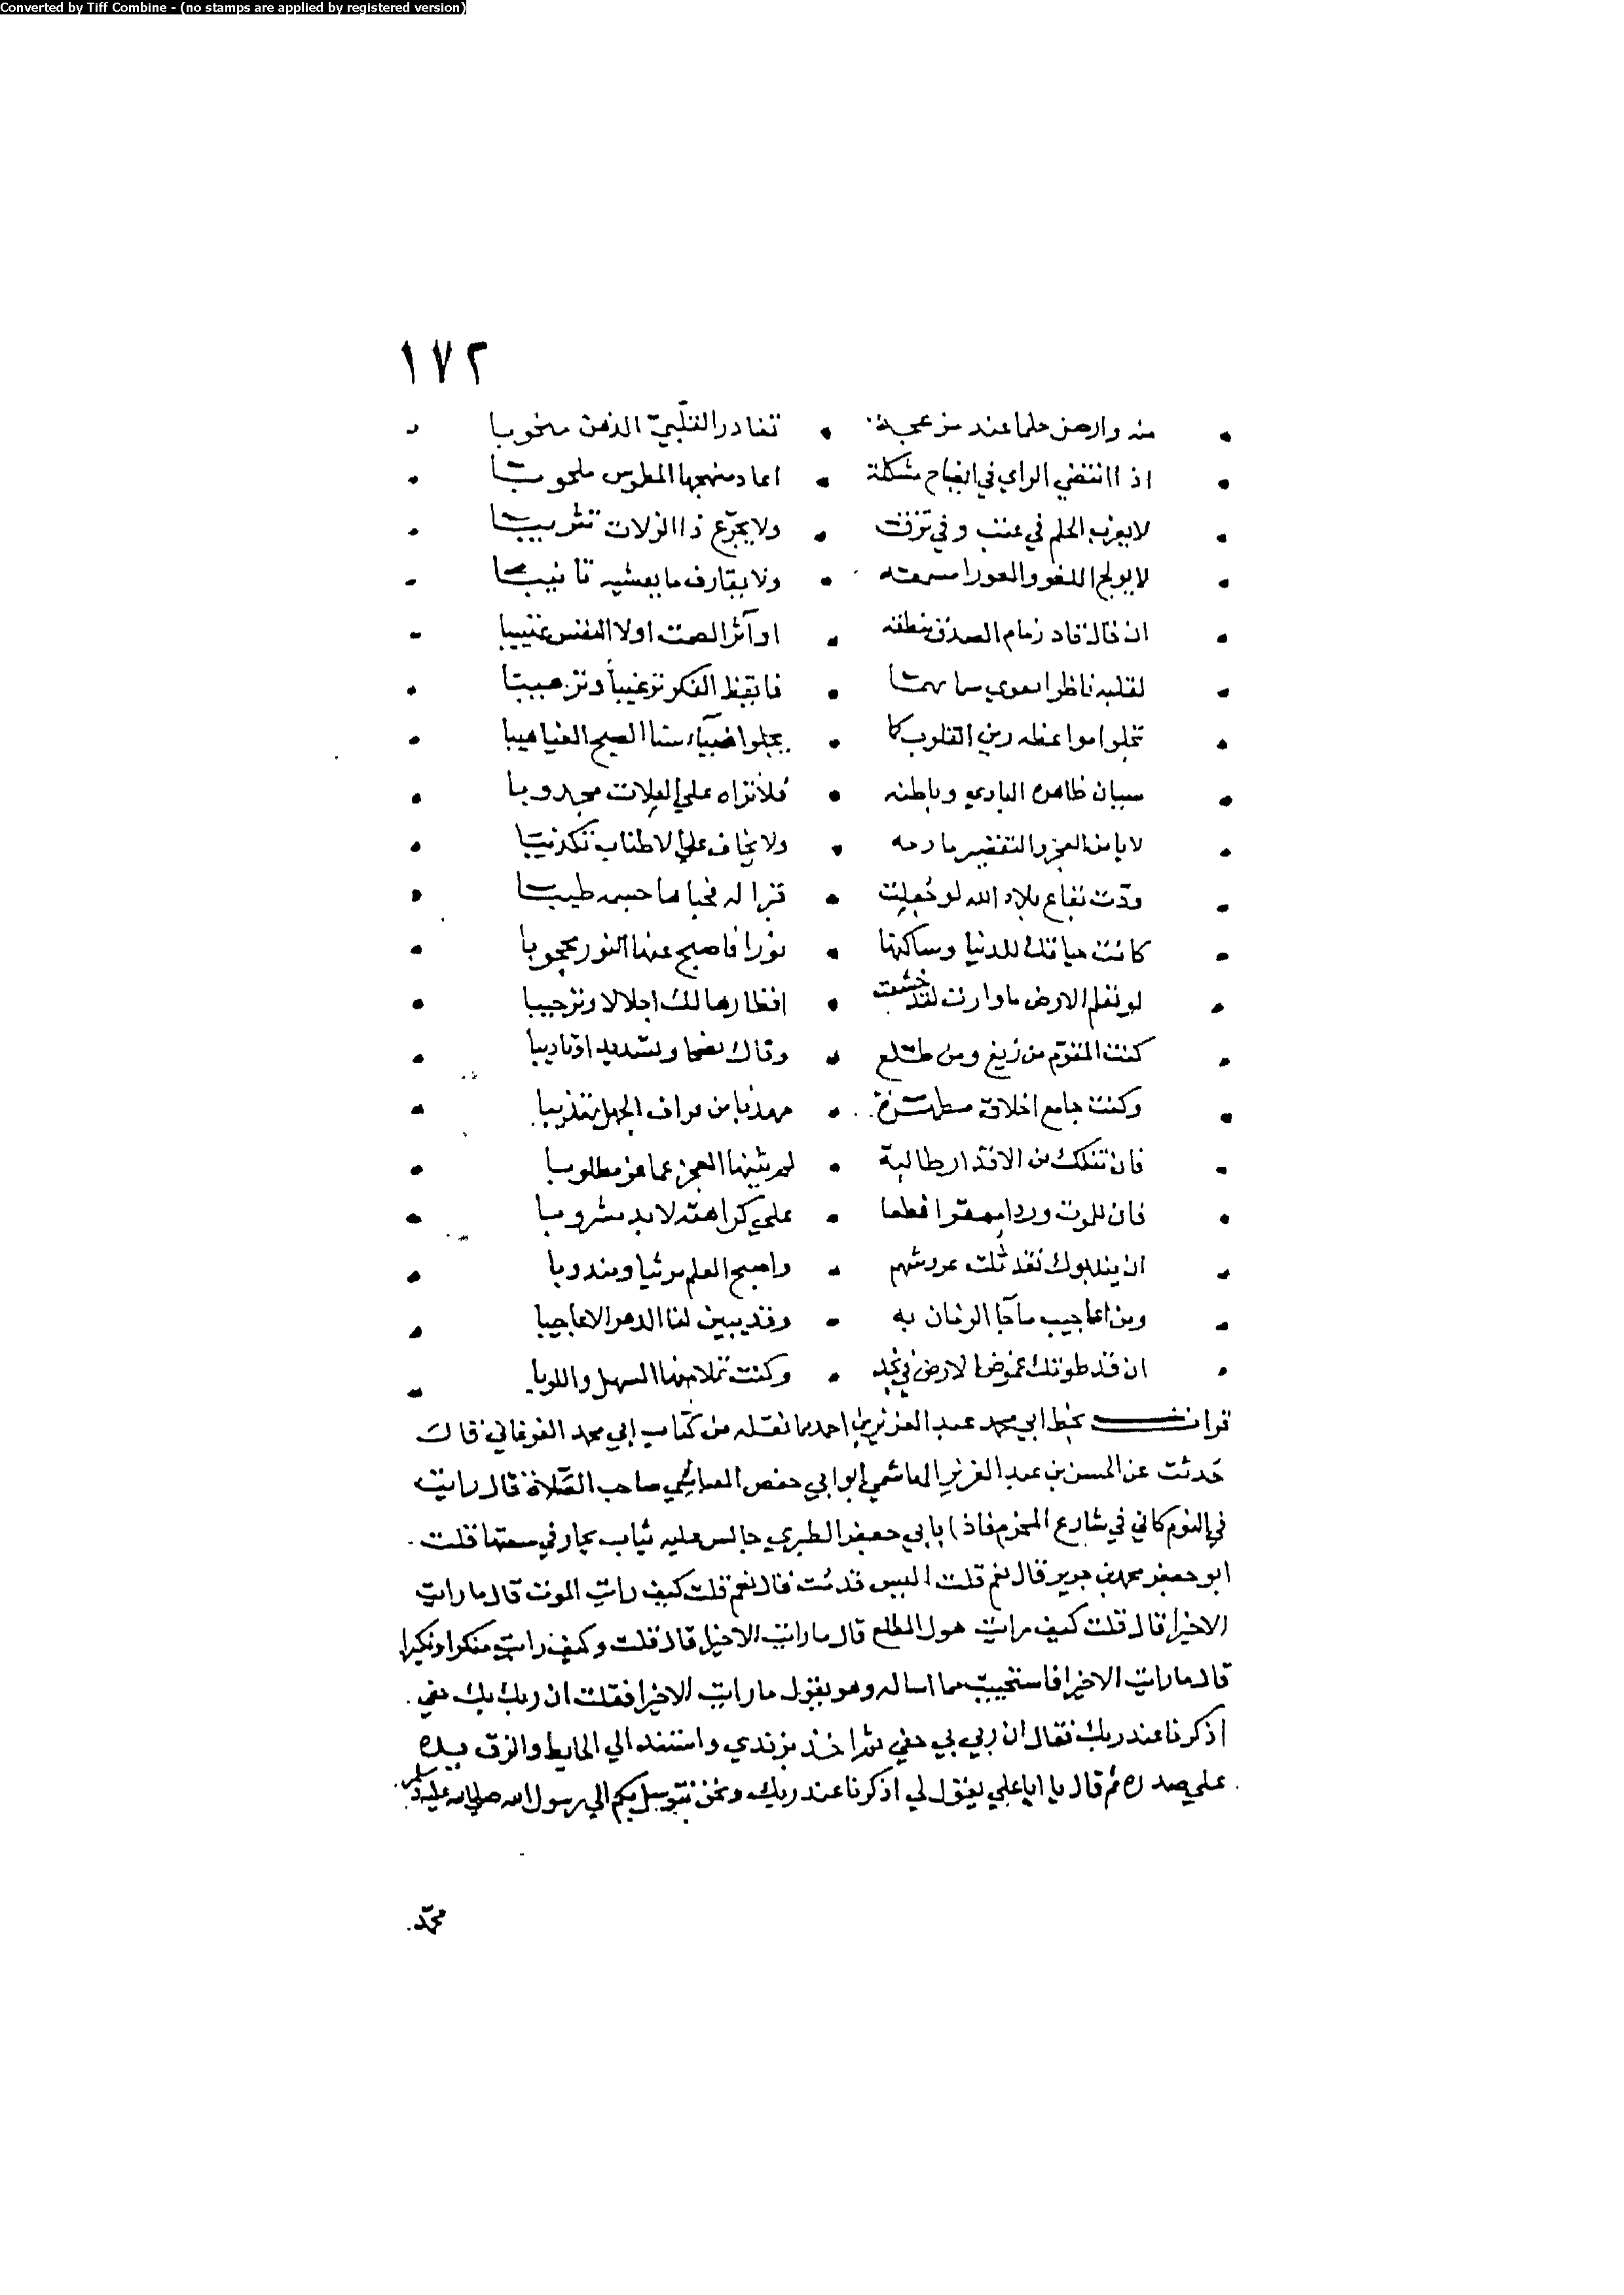 Converted by Tiff Combine - (no stamps are applied by registered version)
١٧٢
منه وارصن حلما عند مزعجة تغادر القلبيّ الذهن منخوبا
اذا انتضي الراي في ايضاح مشكلة اعاد منهجها المطموس ملحوبا
لا يعزب الحلم في عتب وفي نزق ولا يجرّع ذا الزلات تثريبا
لا يولج اللغو والعورا مسمعه ولا يقارف ما يغشيه تانيبا
ان قال قاد زمام الصدق منطقه او آثر الصمت اولا النفس تهييبا
لقلبه ناظرا تقوي سما بهما فايقظ الفكر ترغيباً وترهيبا
تجلوا مواعظه رين القلوب كما يجلوا ضيآء سنا الصبح الغياهيبا
سيان ظاهره البادي وباطنه فلا تراه علي العلات مجدوبا
لا يامن العجز والتقصير مادحه ولا يخاف علي الاطناب تكذيبا
ودّت بقاع بلاد الله لو جُعلت قبرا له فحباها جسمه طيبا
كانت حياتك للدنيا وساكنها نورا فاصبح عنها النور محجوبا
لو تعلم الارض ما وارت لقد خشعت اقطارها لك اجلالا وترحيبا
كنت المقوّم من زيغ ومن ظلع وقاك نصحا وتسديدا وتاديبا
وكنت جامع اخلاق مطهرة مهذبا من قراف الجهل تهذيبا
فان تنلك من الاقدار طالبة لم يثنها العجز عما عز مطلوبا
فان للموت وردا ممقرا فظعا علي كراهته لا بد مشروبا
ان يندبوك فقد ثُلت عروشهم واصبح العلم مرثيا ومندوبا
ومن اعاجيب ما جآ الزمان به وقد يبين لنا الدهر الاعاجيبا
ان قد طوتك غموض الارض في لجد وكنت تملا منها السهل واللوبا
قرات بخط ابي محمد عبد العزيز بن احمد مما نقله من كتاب ابي محمد الفرغاني قال
حُدثت عن الحسن بن عبد العزيز الهاشمي ابو ابي حفص العباسي صاحب الصَّلاة قال رايت
في النوم كاني في شارع المخرم فاذا بابي جعفر الطبري جالس عليه ثياب يحار في سعتها قلت
ابو جعفر محمد بن جرير قال نعم قلت اليس قد مت فقال نعم قلت كيف رايت الموت قال ما رايت
الا خيرا قال قلت كيف رايت هول المطلع قال ما رايت الا خيرا قال قلت وكيف رايت منكرا ونكيرا
قال ما رايت الا خيرا فاستحييت مما اساله وهو يقول ما رايت الا خيرا فقلت ان ربك بك حفي
اذكرنا عند ربك فقال ان ربي بي حفي ثم اخذ بزندي واستند الي الحايط والزق يده
علي صدره ثم قال يا ابا علي يقول لي اذكرنا عند ربك ونحن نتوسل بكم الي رسول الله صلي الله عليه وسلم
محمّد